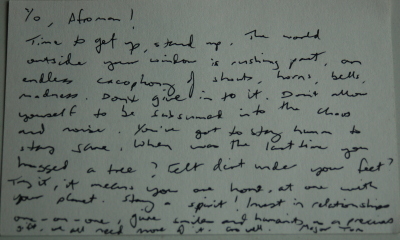 Yo, Afroman!
Time to get up, stand up. The world
outside your window is rushing past, an
endless cacophony of shouts, horns, bells,
madness. Don't give in to it. Don't allow
yourself to be subsumed into the chaos
and noise. You've got to stay human to
stay sane. When was the last time you
hugged a tree? Felt dirt under your feet?
Try it, it means you are home, at one with
your planet. Stay a spirit! Invest in relationships
one-on-one, give smiles and humanity as a precious
gift. We all need more of it. Major Tom